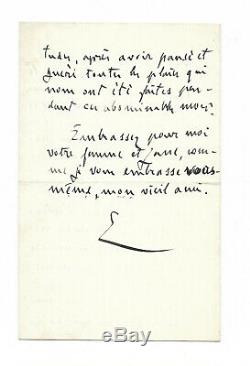 tude, après avoir pansé et
guéri toutes les plaies qui
nous ont été faites pen-
dant ces abominables mois.
Embrassez pour moi
votre femme et Jane, com-
me je vous embrasse vous-
même, mon vieil ami.
E
ebay